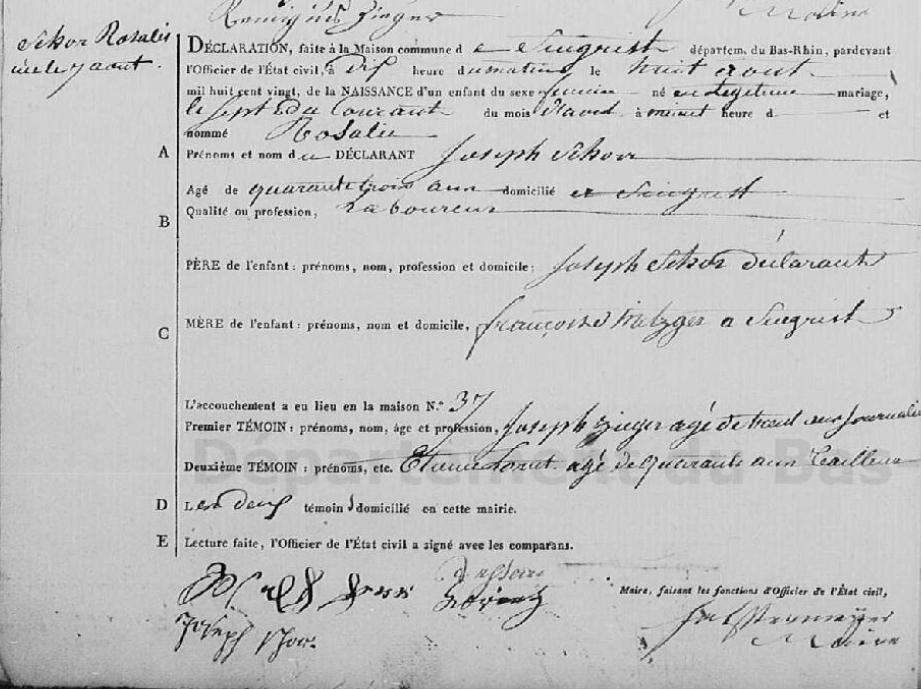 Schor Rosalie
née le 7 aout.
DÉCLARATION, faite à la Maison commune d e Singrist départem. du Bas-Rhin, pardevant
l'Officier de l'État civil, à Dix heure du matin, le huit aout
mil huit cent vingt, de la NAISSANCE d'un enfant du sexe feminin né en Legitime mariage,
le sept du Courant du mois d'aout à minuit heure d et
nommé Rosalie
A Prénoms et nom d u DÉCLARANT Joseph Schorr
Agé de quarante trois ans domicilié a Singrist
B Qualité ou profession, Laboureur
PÈRE de l'enfant: prénoms, nom, profession et domicile; Joseph Schor déclarant
C MÈRE de l'enfant: prénoms, nom et domicile, françoise Metzger a Singrist
L'accouchement a eu lieu en la maison N.° 37
Premier TÉMOIN: prénoms, nom, âge et profession, Joseph agé de ans Journalier
Deuxième TÉMOIN: prénoms, etc. Etienne agé de quarante ans Tailleur
D L es deux témoin s domicilié en cette mairie.
E Lecture faite, l'Officier de l'État civil a signé avec les comparans.
Lorentz
Maire, faisant les fonctions d'Officier de l'État civil,
Joseph Shor.
Maire
Département du Bas